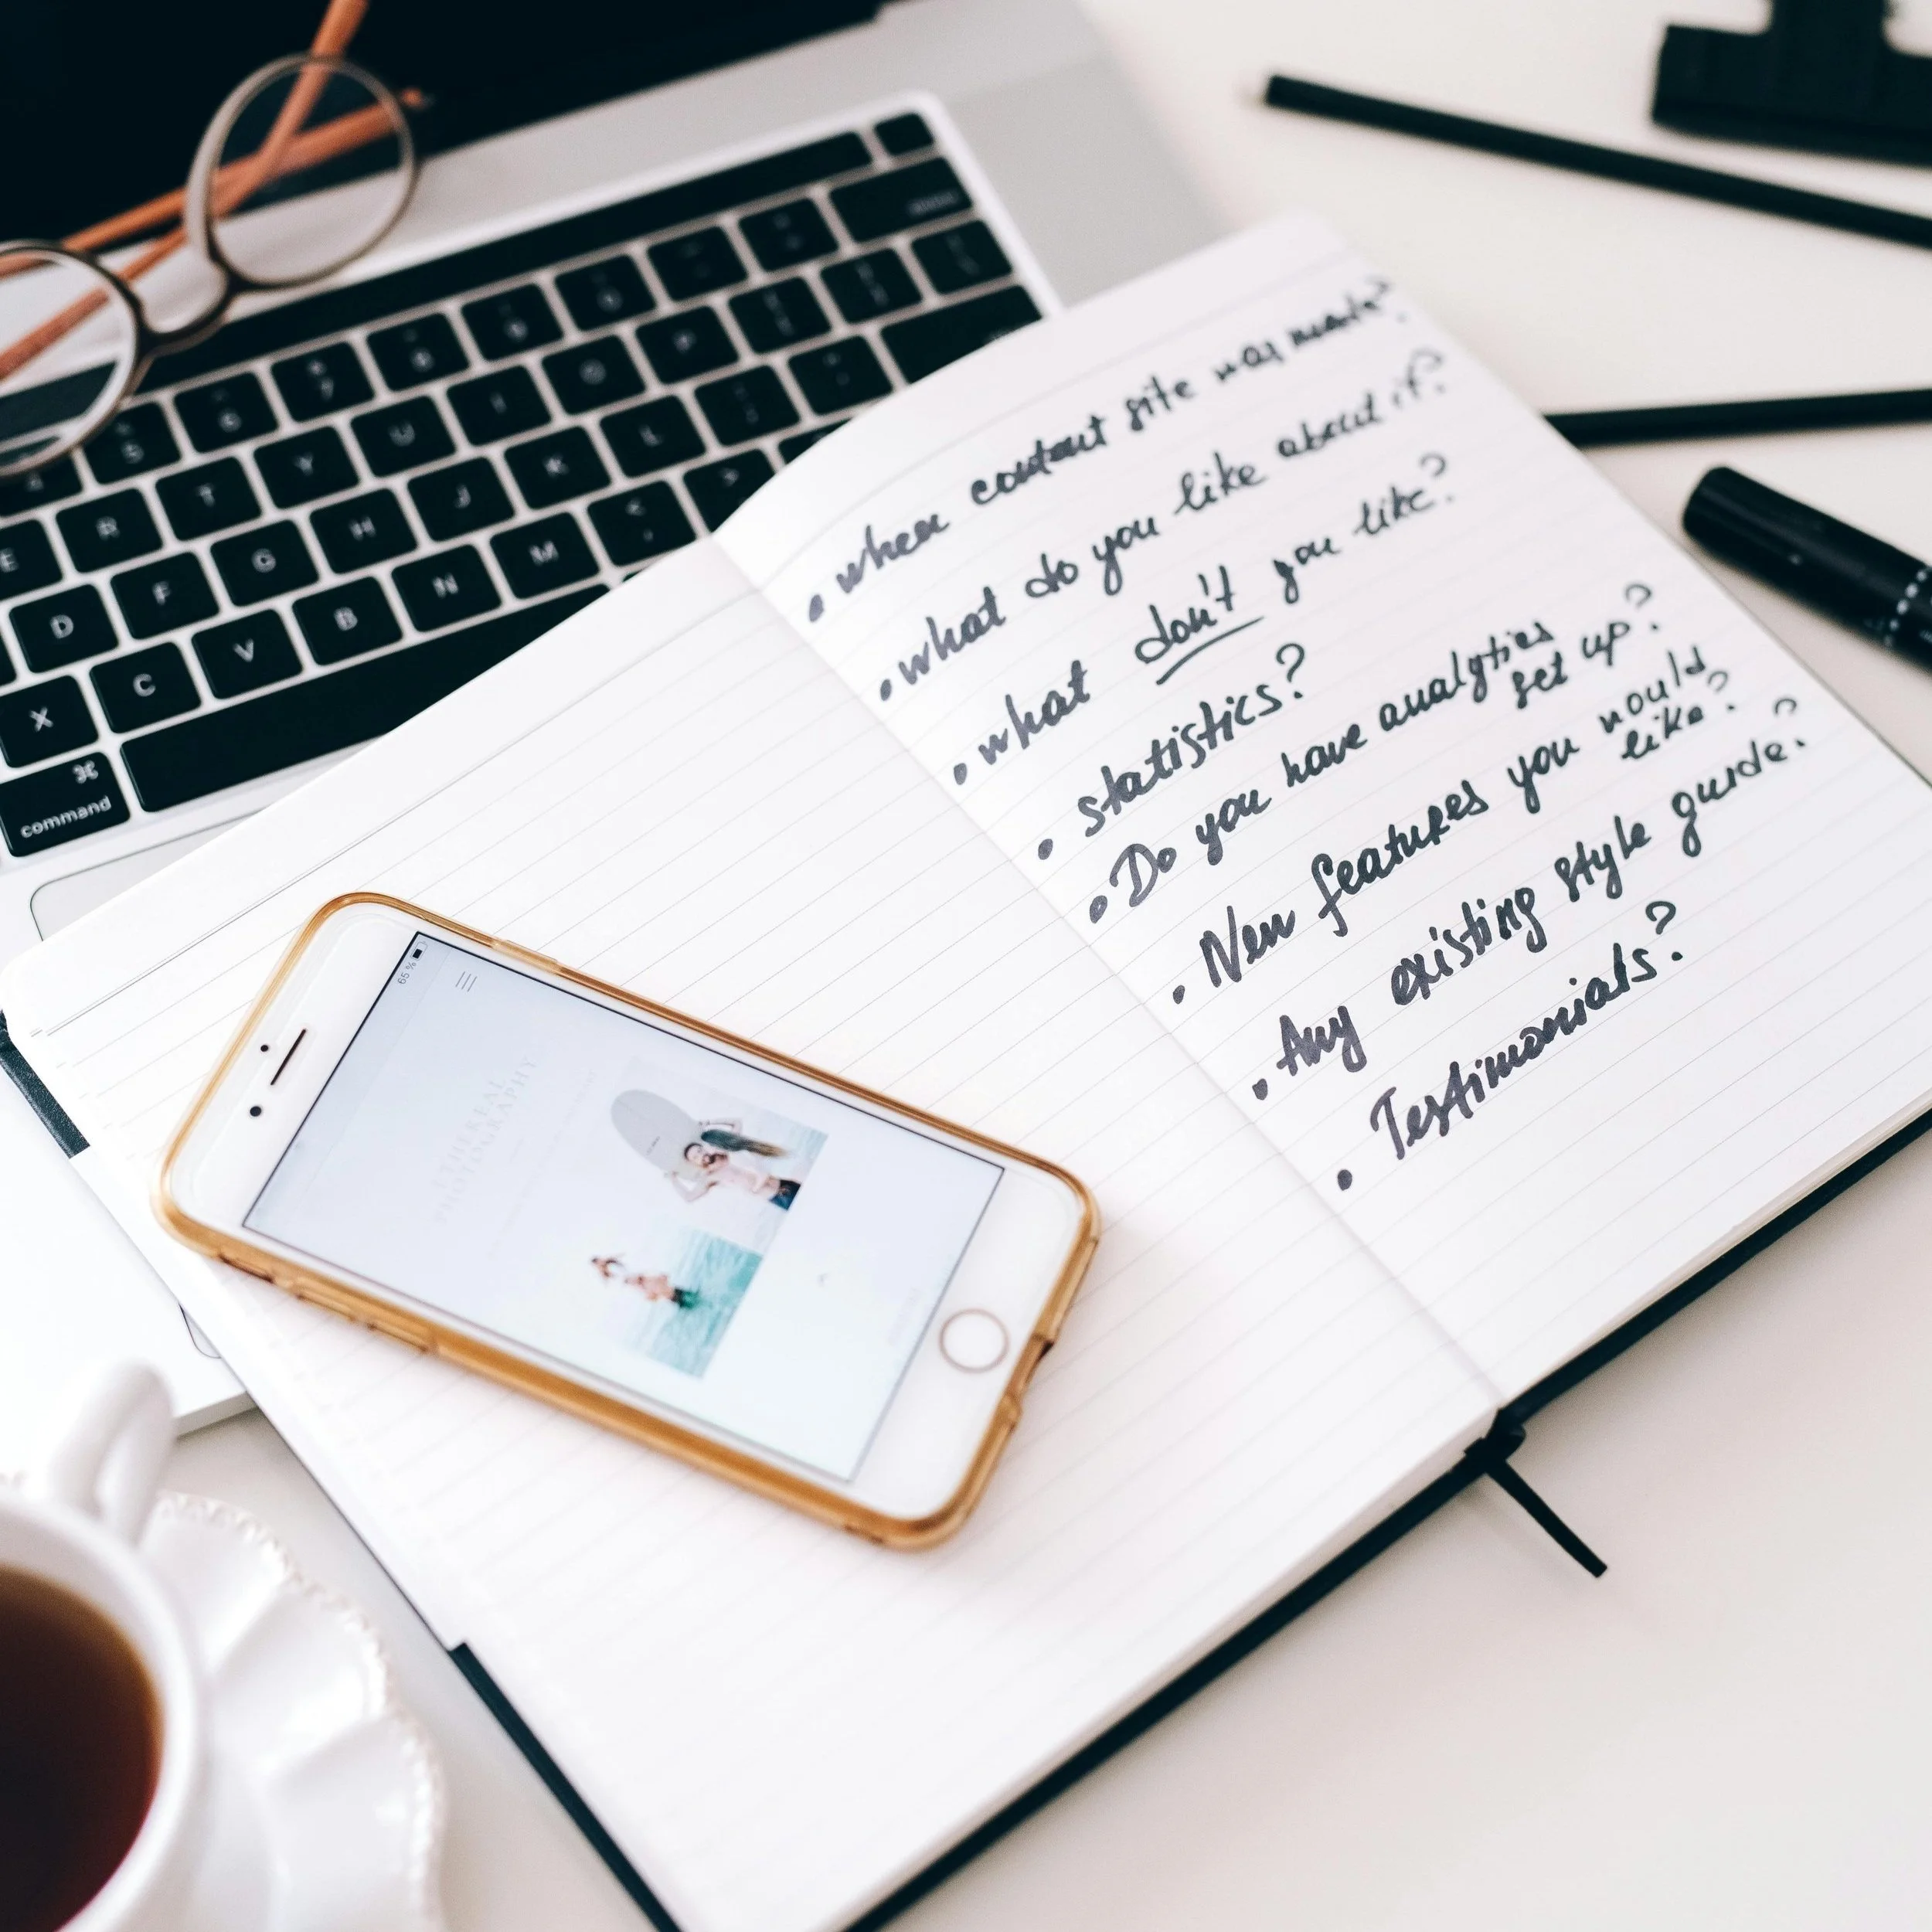 • when content site was made?
• what do you like about it?
• what don't you like?
• statistics?
• Do you have analytics
set up?
• New features you would
like?
• Any existing style guide?
• Testimonials?
65 %
ETHEREAL
PHOTOGRAPHY
E R T Y U I O P
D F G H J K L
X C V B N M
⌘
command